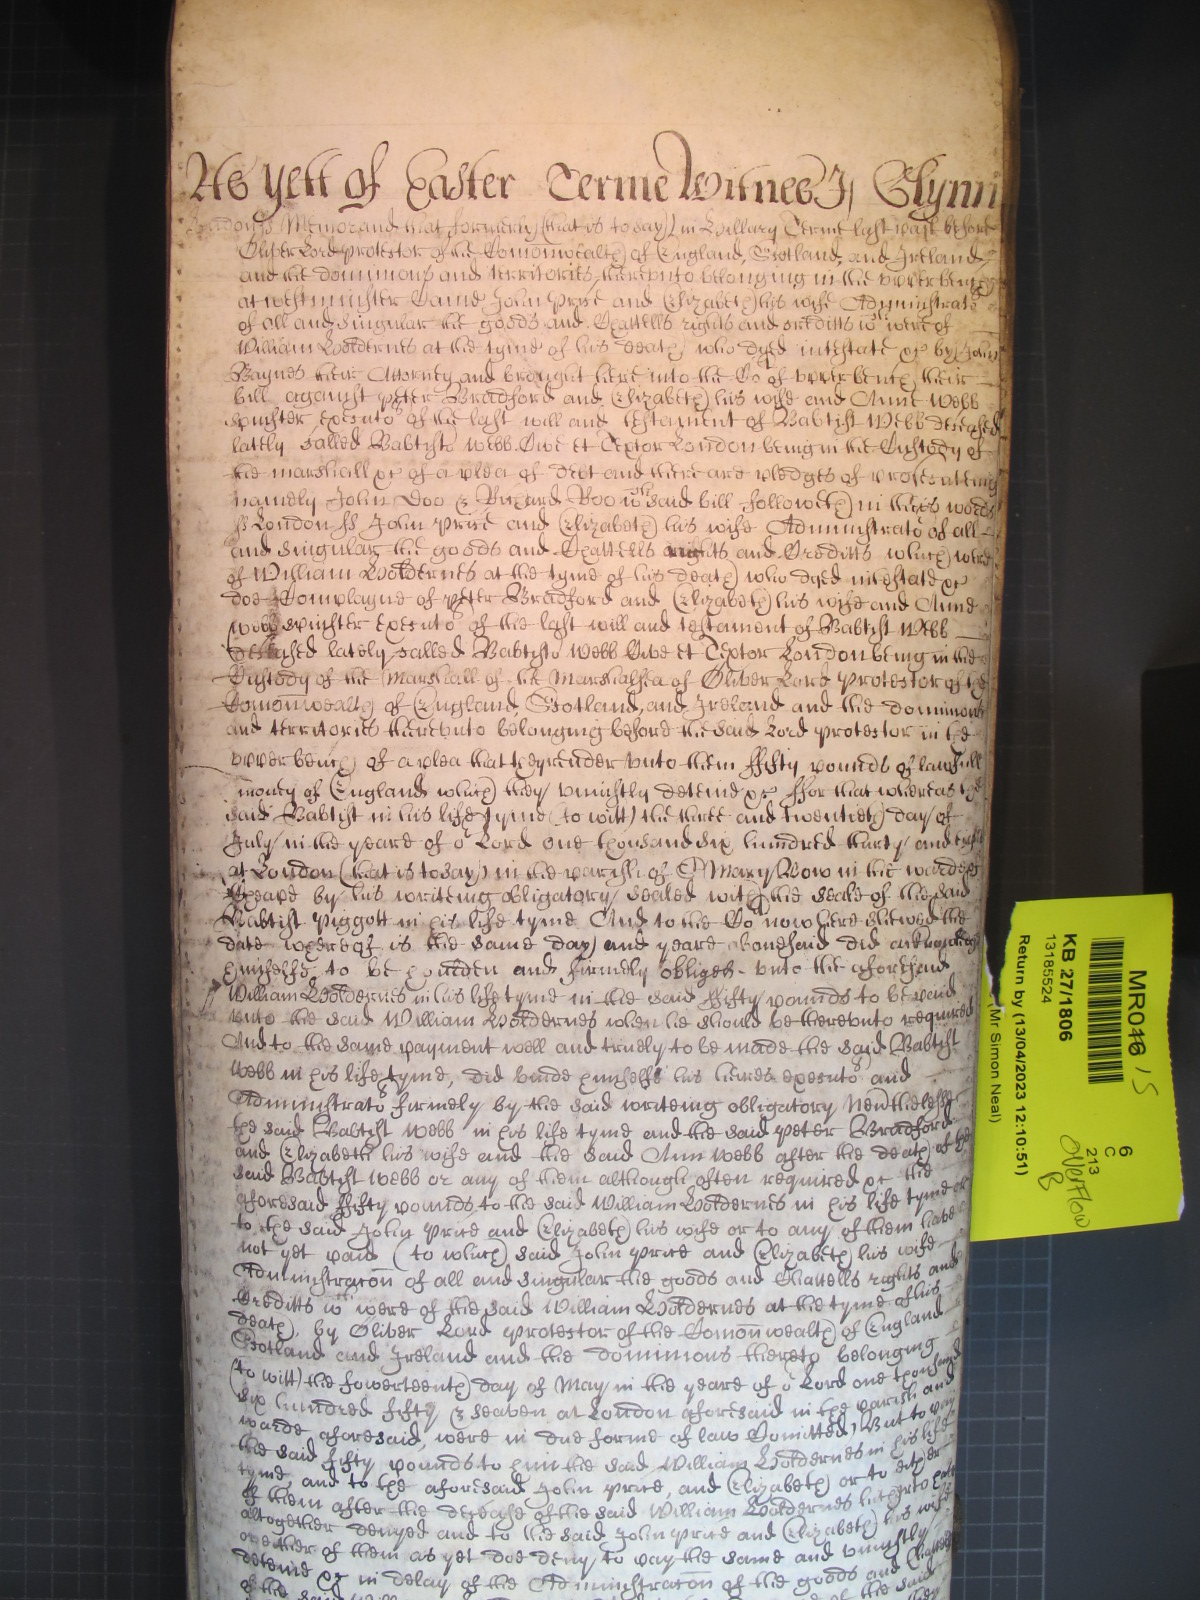 As yett of Easter Terme Witnes J, Glynn
London ss Memorand that formerly (that is to say) in Hillary Terme last past before
Oliver Lord protector of the Comonwealth of England, Scotland, and Ireland
and the dominions and territories thereunto belonging in the upper bench
at westminster Came John Price and Elizabeth his wife Administrato
of all and singular the goods and Chattells rights and creditts wch were of
William at the tyme of his death who dyed intestate &c by John
Baynes their Attorney and brought here into the Cot of upper bench their
bill against Peter Bradford and Elizabeth his wife and Anne Webb
spinster executors of the last will and testament of Babtist Webb deceased
lately called Babtist Webb Cive et Textor London being in the Custody of
the marshall &c of a plea of debt and there are pledges of prosecuteing
namely John Doo & Richard Roo wch said bill followeth in theis words
ss London ss John Price and Elizabeth his wife Administrato of all
and singular the goods and Chattells rights and Creditts which were
of William at the tyme of his death who dyed intestate &c
doe Complayne of Peter Bradford and Elizabeth his wife and Anne
Webb spinster executors of the last will and testament of Babtist Webb
deceased lately called Babtist Webb Cive et Textor London being in the
Custody of the Marshall of the Marshalsea of Oliver Lord Protector of the
Comonwealth of England, Scotland, and Ireland and the dominions
and territories thereunto belonging before the said Lord protector in the
upper bench of a plea that they render unto them ffifty pounds of lawfull
money of England which they uniustly deteine &c ffor that whereas the
said Babtist in his life tyme (to witt) the three and twentieth day of
July in the yeare of or Lord one thousand six hundred thirty and eight
at London (that is to say) in the parish of St Mary Bow in the warde of
Cheape by his writeing obligatory sealed with the seale of the said
Babtist Piggott in his life tyme And to the Cot now here shewed the
date whereof is the same day and yeare abovesaid did acknowledge
himselfe to be houlden and firmely obliged unto the aforesaid
William in his life tyme in the said ffifty pounds to be paid
unto the said William when he should be thereunto required
And to the same payment well and truely to be made the said Babtist
Webb in his life tyme, did binde himselfe his heires executors and
Administrators firmely by the said writeing obligatory Neverthelesse
the said Babtist Webb in his life tyme and the said Peter Bradford
and Elizabeth his wife and the said Ann Webb after the death of the
said Babtist Webb or any of them although often required &c the
aforesaid ffifty pounds to the said William in his life tyme or
to the said John Price and Elizabeth his wife or to any of them have
not yet paid (to which said John Price and Elizabeth his wife
Administracon of all and singular the goods and Chattells rights and
Creditts wch were of the said William at the tyme of his
death, by Oliver Lord Protector of the Comonwealth of England
Scotland and Ireland and the dominions thereto belonging
(to witt) the fowerteenth day of May in the yeare of or Lord one thousand
six hundred fifty & seaven at London aforesaid in the parish and
warde aforesaid, were in due forme of law Comitted) But to pay
the said fifty pounds to him the said William in his life
tyme, and to the aforesaid John Price, and Elizabeth or to either
of them after the decease of the said William hitherto hath
altogether denyed and to the said John Price and Elizabeth his wife
or either of them as yet doe deny to pay the same and uniustly
deteine &c in delay of the Administracon of the goods and Chattells
of the said
MR046 15
KB 27/1806
13185524
Return by (13/04/2023 12:10:51)
(Mr Simon Neal)
6
C
213
Overflow
B